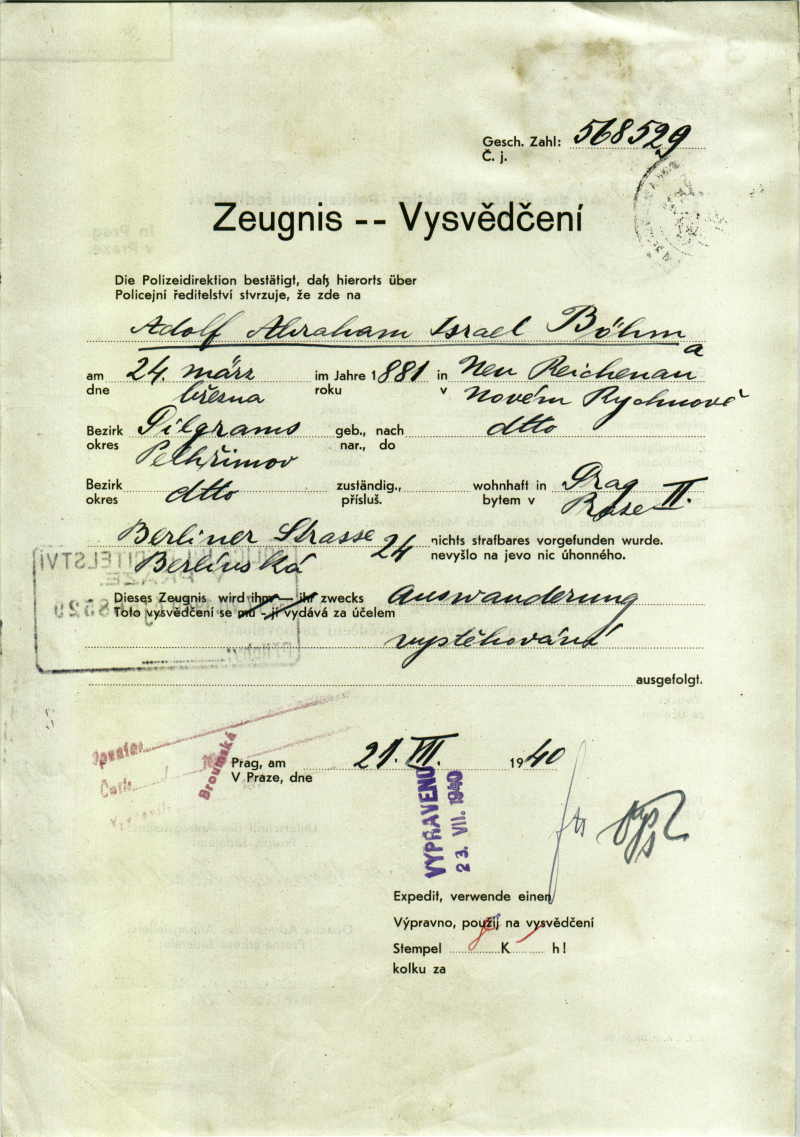 Gesch. Zahl: 568529
Č. j.
Zeugnis -- Vysvědčení
Die Polizeidirektion bestätigt, daß hierorts über
Policejní ředitelství stvrzuje, že zde na
Adolf Abraham Israel Böhm
a
am 24. märz im Jahre 1881 in Neu Reichenau
dne března roku v Novém Rychnově
Bezirk Pilgrams geb., nach dtto
okres Pelhřimov nar., do
Bezirk dtto zuständig., wohnhaft in Prag II.
okres přísluš. bytem v Praze
Berliner Strasse 24 nichts strafbares vorgefunden wurde.
Berlínská nevyšlo na jevo nic úhonného.
Dieses Zeugnis wird ihm — ihr zwecks Auswanderung
Toto vysvědčení se mu - jí vydává za účelem
vystěhování
ausgefolgt.
Prag, am 21. VII. 1940
V Praze, dne
Broumská
VYPRAVENO
23. VII. 1940
Expedit, verwende einen
Výpravno, použij na vysvědčení
Stempel K h!
kolku za